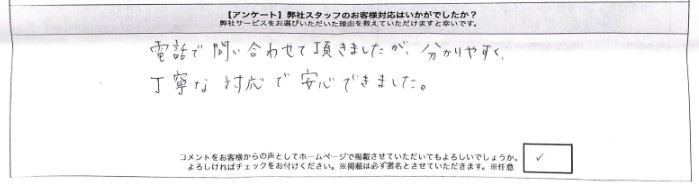 【アンケート】弊社スタッフのお客様対応はいかがでしたか？
弊社サービスをお選びいただいた理由を教えていただけますと幸いです。
電話で問い合わせて頂きましたが、分かりやすく、
丁寧な対応で安心できました。
コメントをお客様からの声としてホームページで掲載させていただいてもよろしいでしょうか。
よろしければチェックをお付けください。※掲載は必ず匿名とさせていただきます。※任意
✓